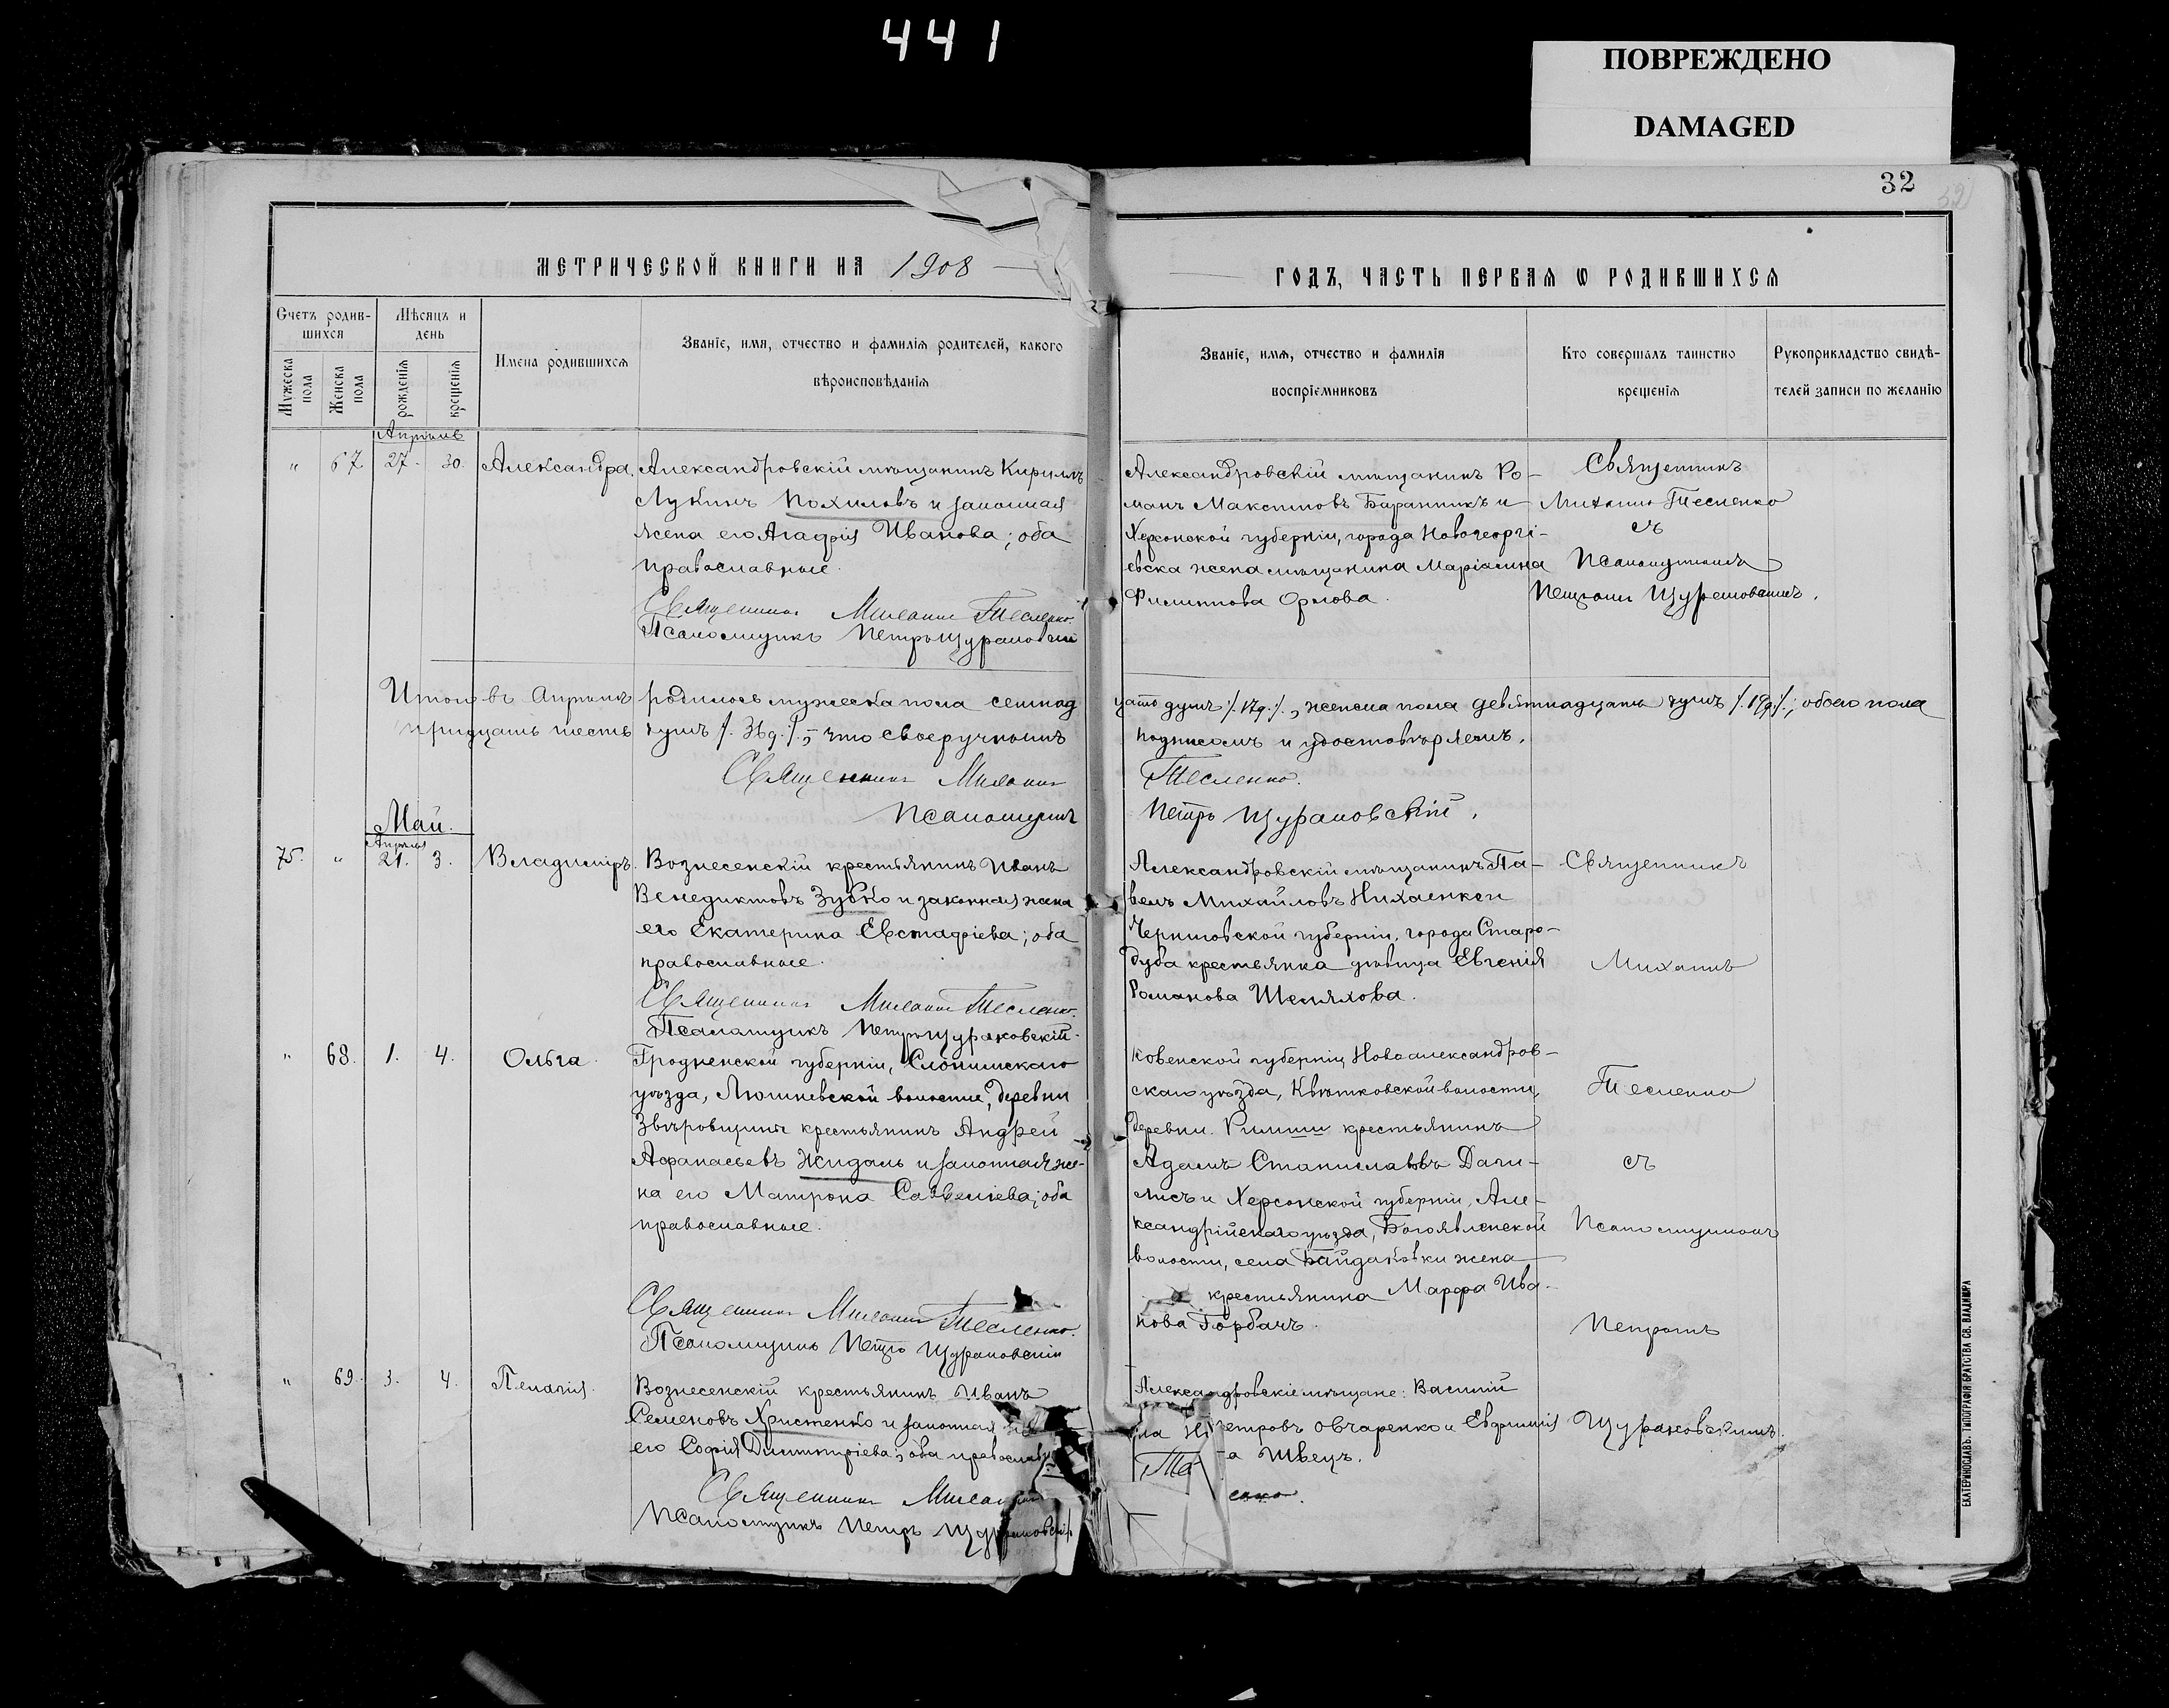 441
ПОВРЕЖДЕНО
DAMAGED
32
МЕТРИЧЕСКОЙ КНИГИ НА 1908
ГОДЪ, ЧАСТЬ ПЕРВАЯ Ѡ РОДИВШИХСЯ
Счетъ родив-
шихся
Мужеска пола
Женска пола
Мѣсяцъ и
день
рожденія
крещенія
Имена родившихся
Званіе, имя, отчество и фамилія родителей, какого
вѣроисповѣданія
Званіе, имя, отчество и фамилія
воспріемниковъ
Кто совершалъ таинство
крещенія
Рукоприкладство свидѣ-
телей записи по желанію
Апрѣль
" 67. 27. 30. Александра.
Александровскій мѣщанинъ Кириллъ
Лукинъ Похиловъ и законная
жена его Агафія Иванова; оба
православные.
Священникъ Михаилъ Тесленко.
Псаломщикъ Петръ Щураковскій
Александровскій мѣщанинъ Ро-
манъ Максимовъ Баранникъ и
Херсонской губерніи, города Новогеоргі-
евска жена мѣщанина
Филиппова Орлова.
Священникъ
Михаилъ Тесленко
съ
Псаломщикомъ
Петромъ Щураковскимъ.
Итого въ Апрѣлѣ родилось мужеска пола семнад
цать душъ /. 17д. /., женска пола девятнадцать душъ /. 19д. /.; обоего пола
тридцать шесть душъ /. 36д. /., что своеручнымъ
подписомъ и удостовѣряемъ.
Священникъ Михаилъ
Тесленко.
Псаломщикъ
Петръ Щураковскій.
Май.
Апрѣля
75. " 21. 3. Владиміръ.
Вознесенскій крестьянинъ Иванъ
Венедиктовъ Зубко и законная жена
его Екатерина Евстафіева; оба
православные.
Священникъ Михаилъ Тесленко.
Псаломщикъ Петръ Щураковскій.
Александровскій мѣщанинъ Па-
велъ Михайловъ и
Черниговской губерніи, города Старо-
дуба крестьянка дѣвица Евгенія
Романова Шеляхова.
Священникъ
Михаилъ
" 68. 1. 4. Ольга.
Гродненской губерніи, Слонимскаго
уѣзда, Люшневской волости, деревни
Звѣровщины крестьянинъ Андрей
Афанасьевъ Жидаль и законная же-
на его Матрона Савельева; оба
православные.
Священникъ Михаилъ Тесленко.
Псаломщикъ Петръ Щураковскій
Ковенской губерніи, Новоалександров-
скаго уѣзда, Квѣтковской волости,
деревни Римши крестьянинъ
Адамъ Станиславовъ Даги-
лисъ и Херсонской губерніи, Але-
ксандрійскаго уѣзда, Богоявленской
волости, села Байдаковки жена
крестьянина Марфа Ива-
нова Горбачъ.
Тесленко
съ
Псаломщикомъ
Петромъ
" 69. 3. 4. Пелагія.
Вознесенскій крестьянинъ Иванъ
Семеновъ Христенко и законная
его Софія Димитріева; оба православ
Священникъ
Псаломщикъ Петръ Щураковскій
Александровскіе мѣщане: Василій
етровъ Овчаренко и Евфимія
а Швецъ.
Щураковскимъ.
ЕКАТЕРИНОСЛАВЪ. ТИПОГРАФІЯ БРАТСТВА СВ. ВЛАДИМІРА